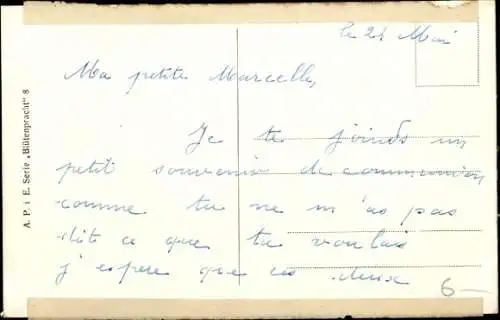 le 21 Mai
Ma petite Marcelle,
Je te joinds un
petit souvenir de communion
comme tu ne m'as pas
dit ce que tu voulais
j'espere que ces deux
6-
A. P. i E. Serie „Blütenpracht" 8